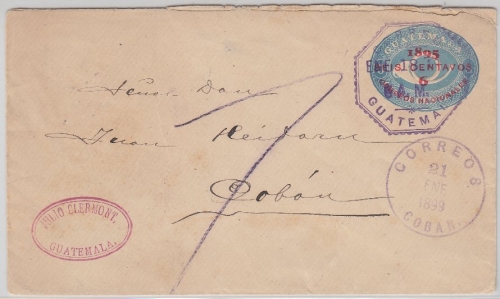 GUATEMALA
1895
SEIS CENTAVOS
6
CORREOS NACIONALES
ENE 18
A.M.
GUATEMA
Señor Don
Juan
Cobán
CORREOS
21
ENE
1899
COBAN.
JULIO CLERMONT.
GUATEMALA.